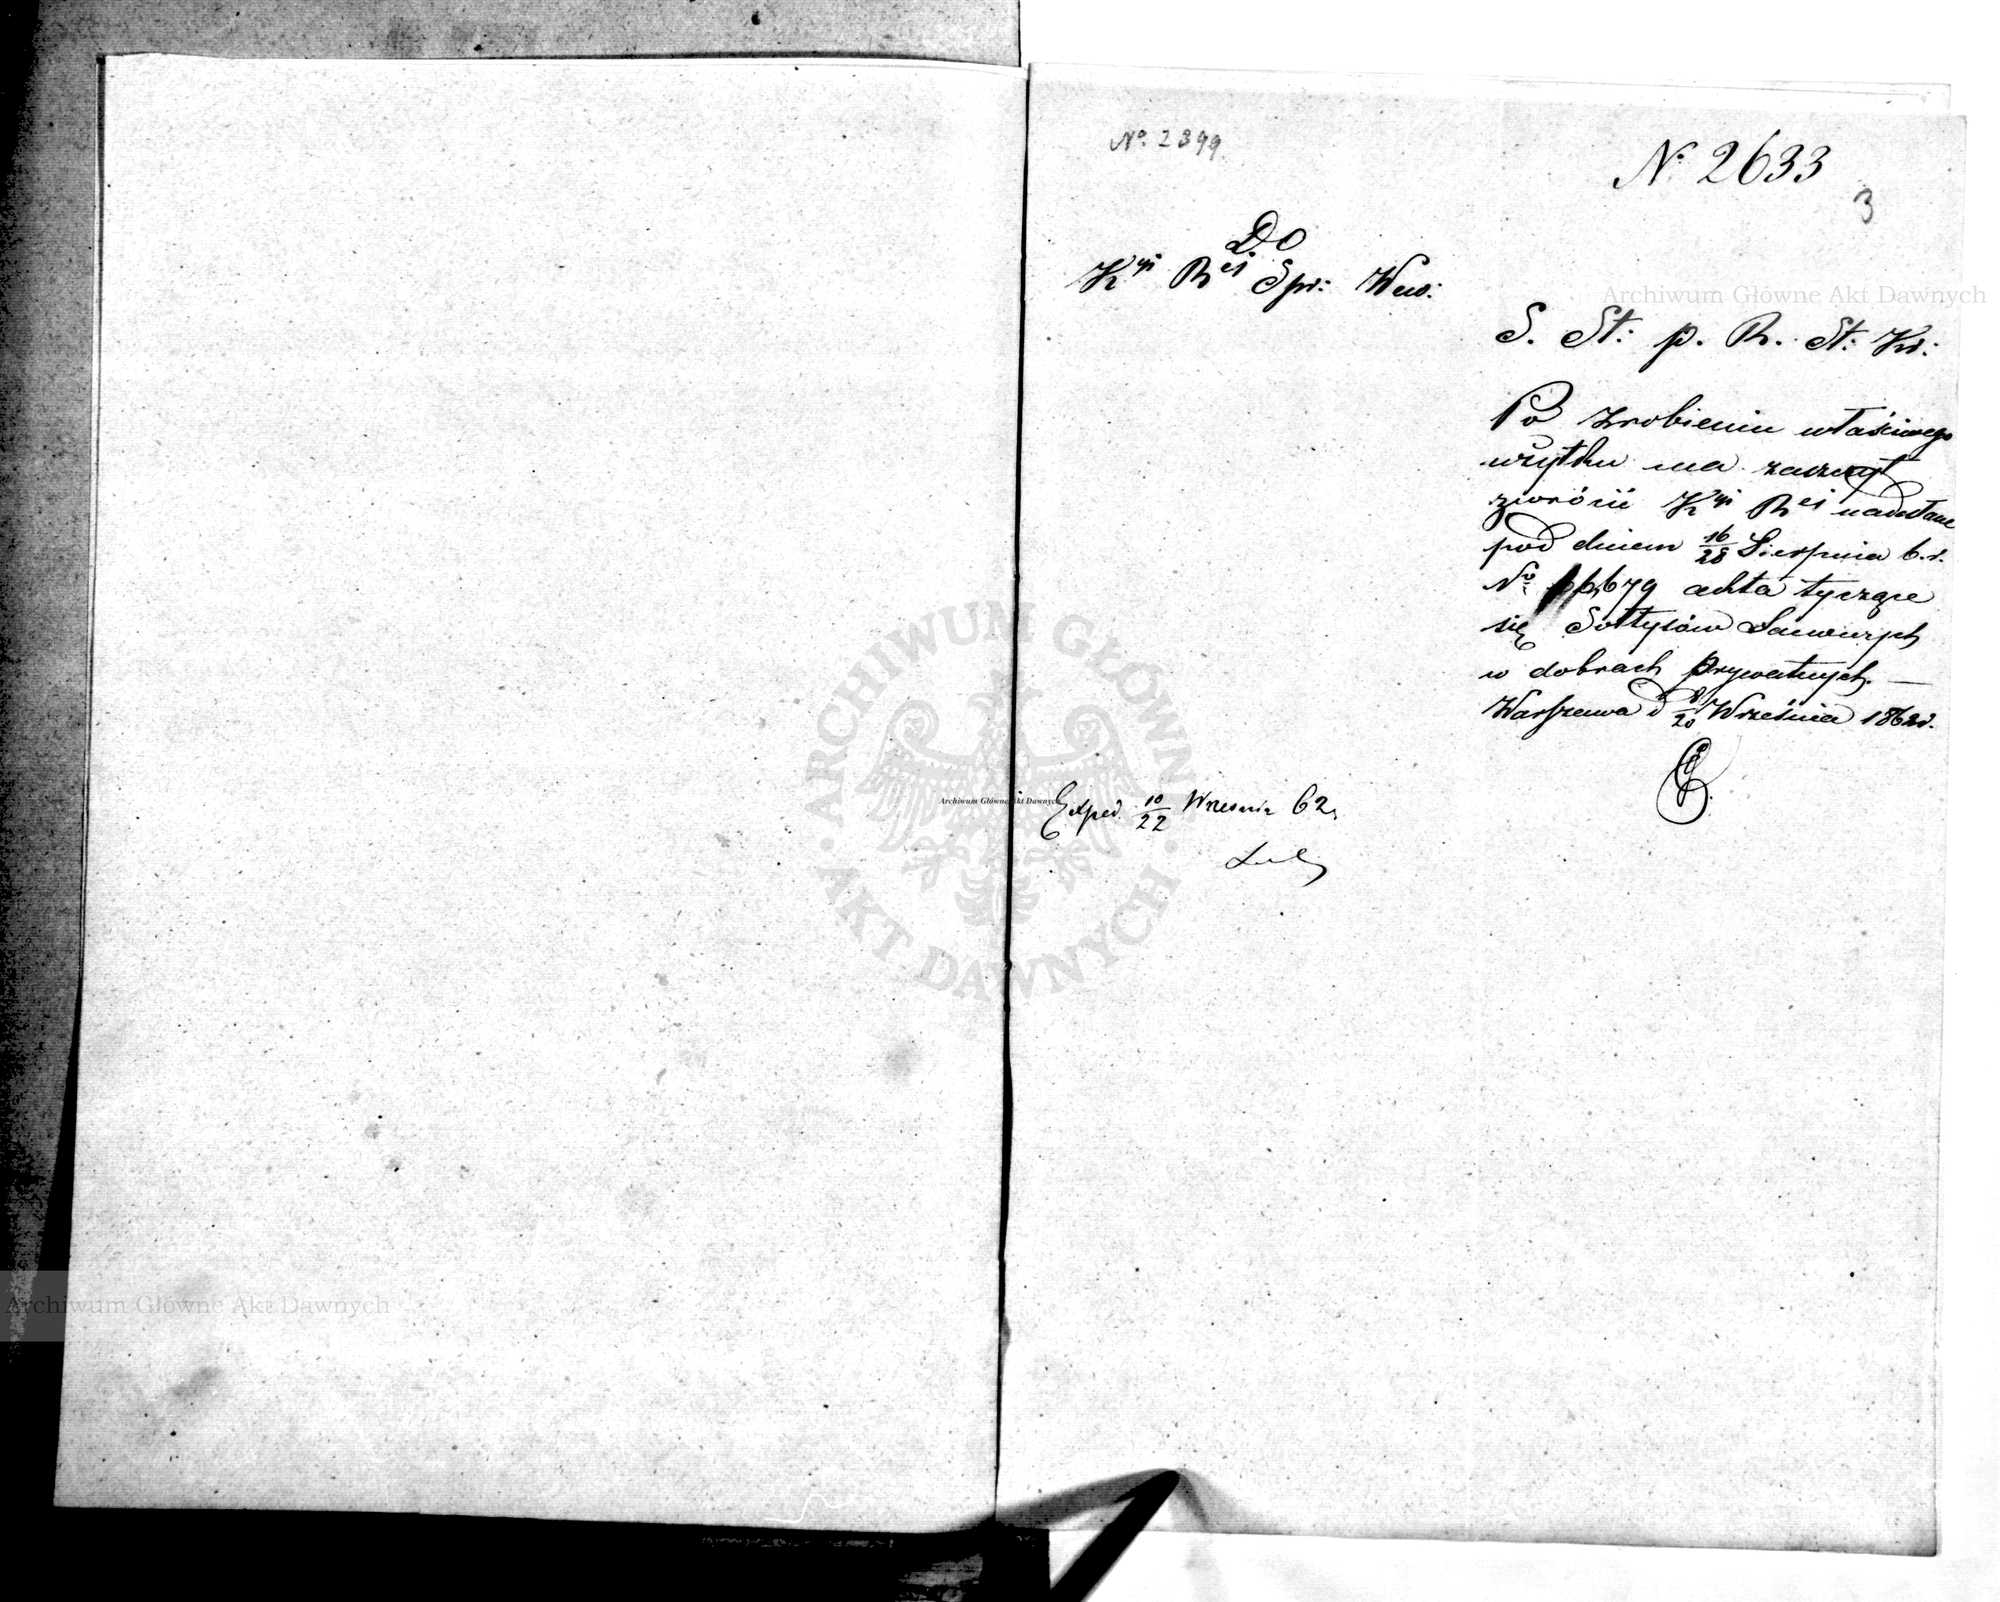 No. 2899
No 2633
3
Do
Kyi Rei Spr: Wew:
S. St: p. R. St: Kr:
Po zrobieniu właściwego
użytku ma zaszczyt
zwrócić Kyi Rei nadesłane
pod dniem 16/28 Sierpnia b.r.
No 679 akta tyczące
się Sołtysów
w dobrach prywatnych. —
Warszawa d 8/20 Września 1862r.
Exped. 10/22 Wrzesnia 62.
Archiwum Główne Akt Dawnych
Archiwum Główne Akt Dawnych
Archiwum Główne Akt Dawnych
ARCHIWUM GŁÓWNE
AKT DAWNYCH